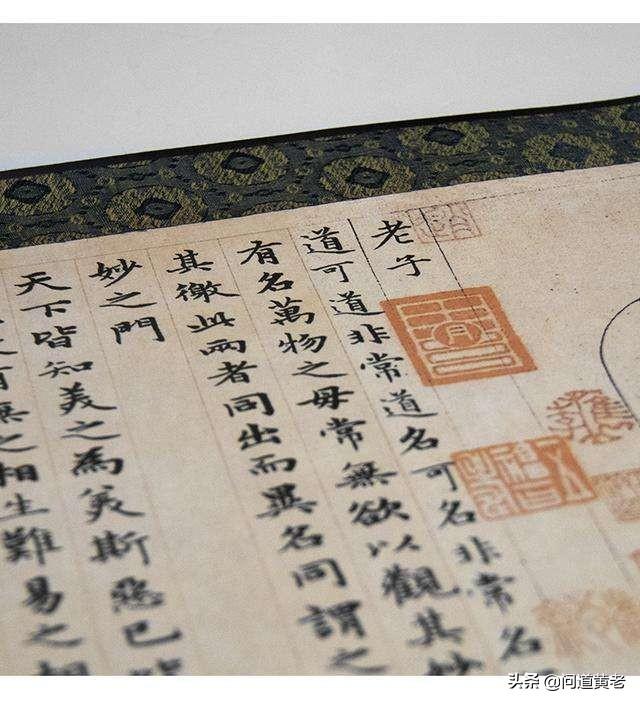 老子
道可道非常道名可名非常名
有名萬物之母常無欲以觀其妙
其徼此兩者同出而異名同謂之
妙之門
天下皆知美之為美斯惡已皆
有無之相生難易之相
头条 @问道黄老